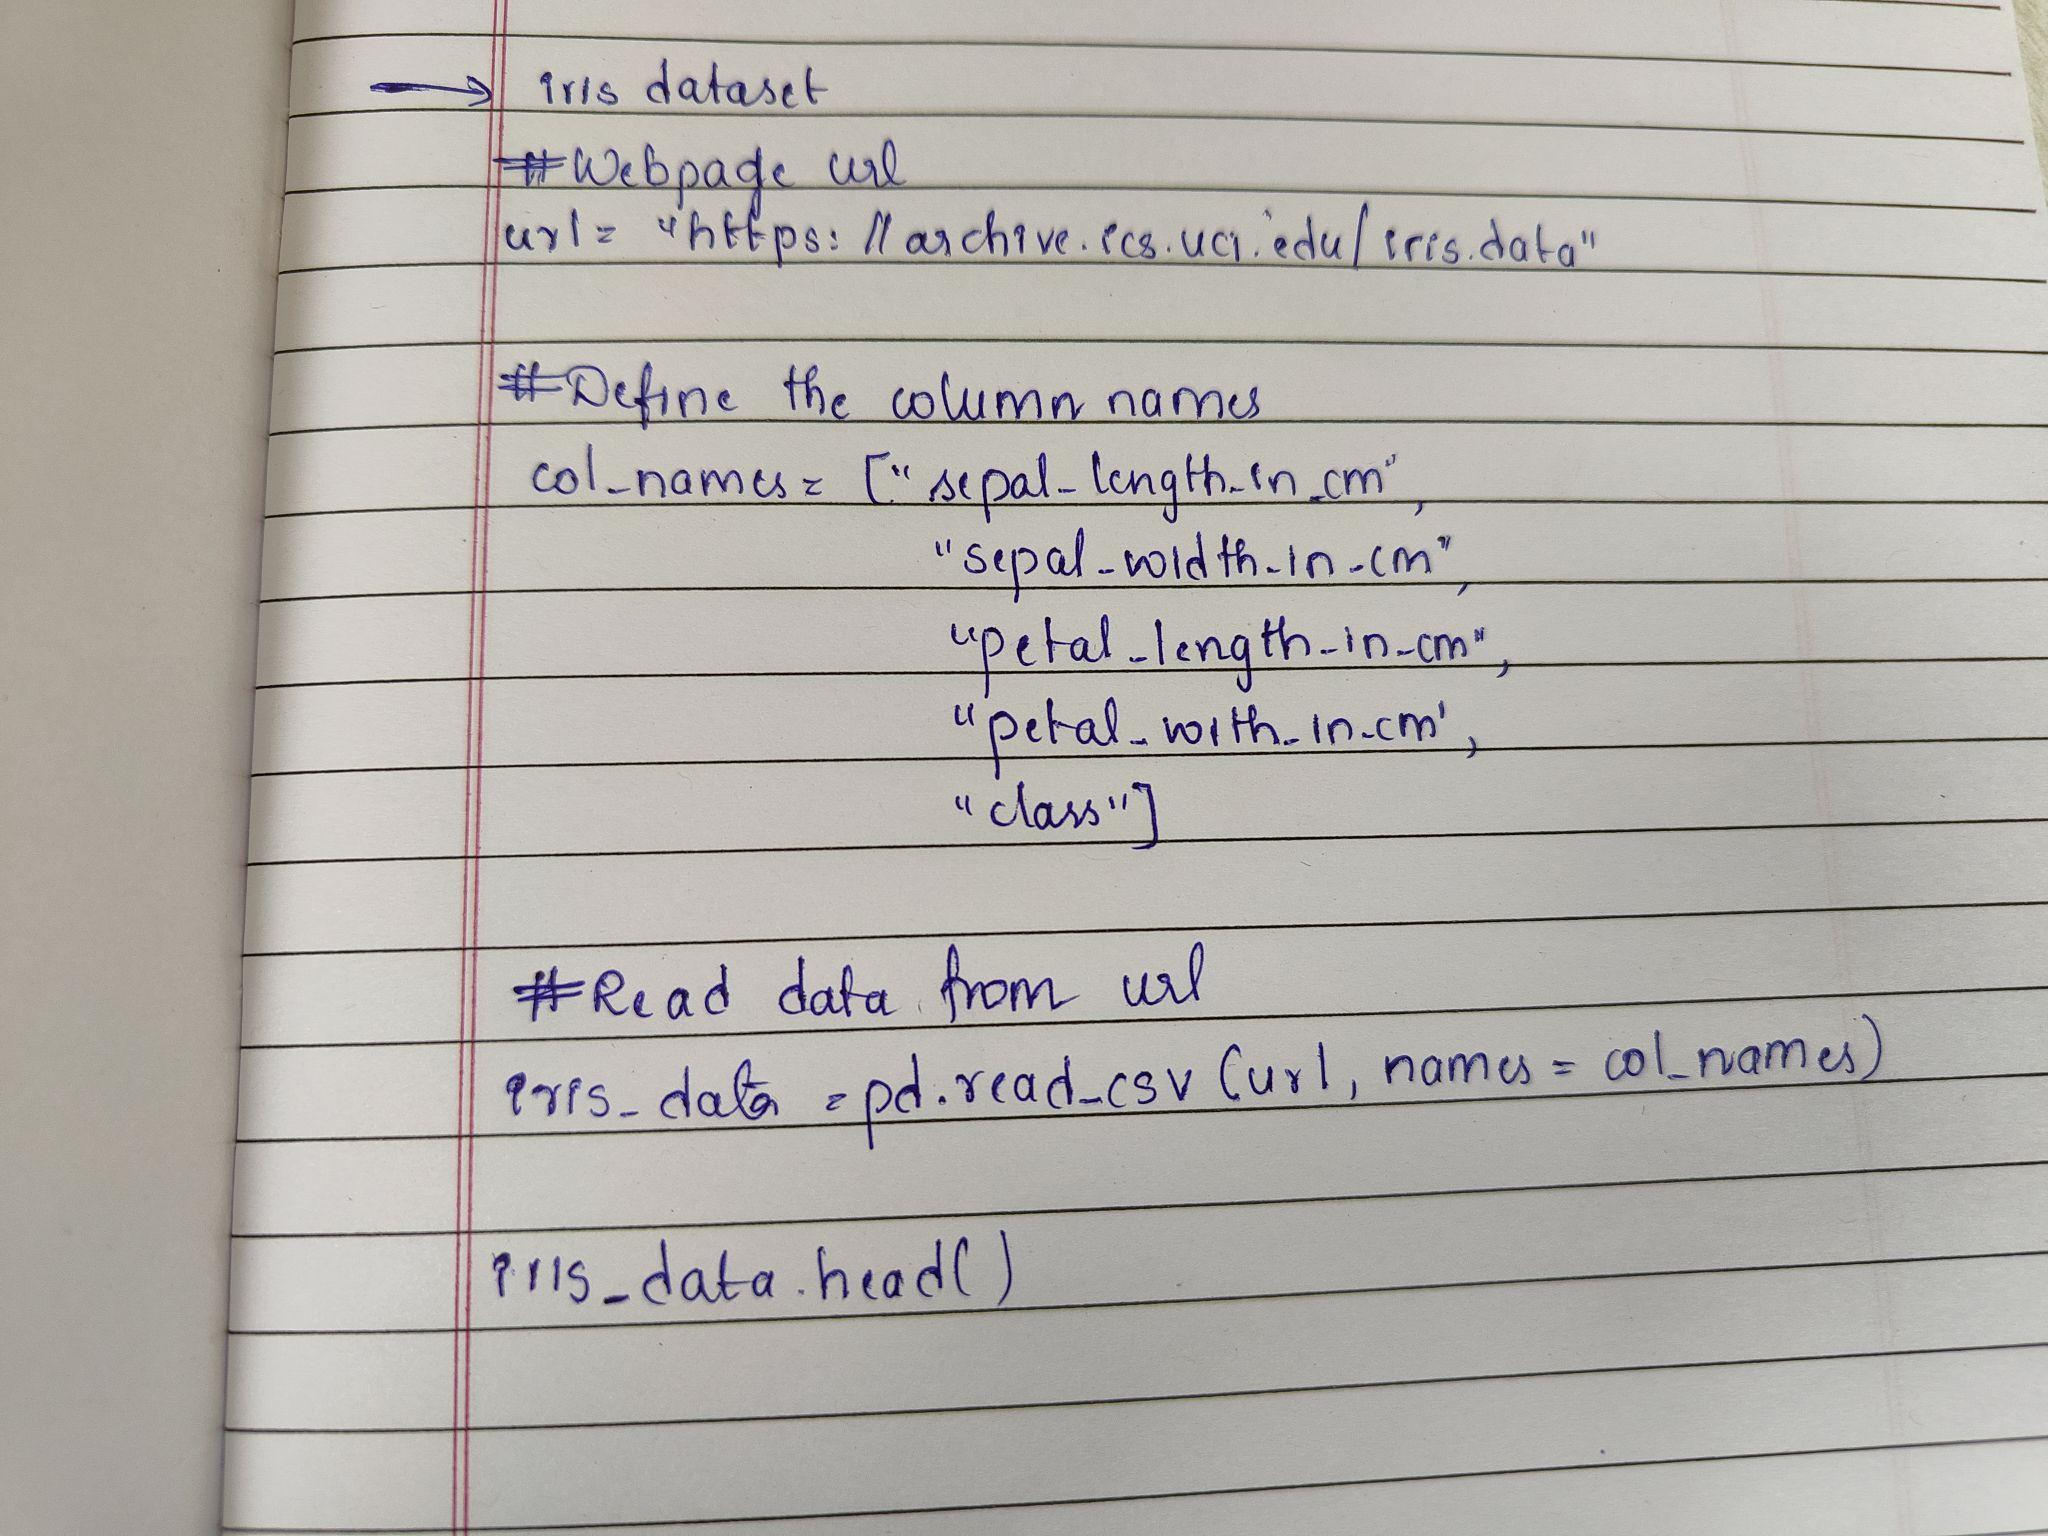 → iris dataset
#Webpage url
url= "https://archive.ics.uci.edu/iris.data"
#Define the column names
col_names= ["sepal_length_in_cm",
"sepal_width_in_cm",
"petal_length_in_cm",
"petal_with_in_cm',
"class"]
#Read data from url
iris_data =pd.read_csv (url, names = col_names)
iris_data.head()